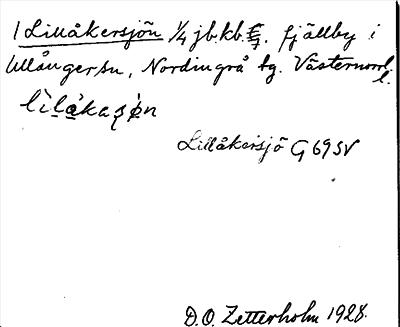 1 Lillåkersjön 1/4 jb.kb. fjällby i
Ullånger sn, Nordingrå tg. Västernorrl.
l.
lìlákaʂø̀n
Lillåkersjö G 69 SV
D.O. Zetterholm 1928.